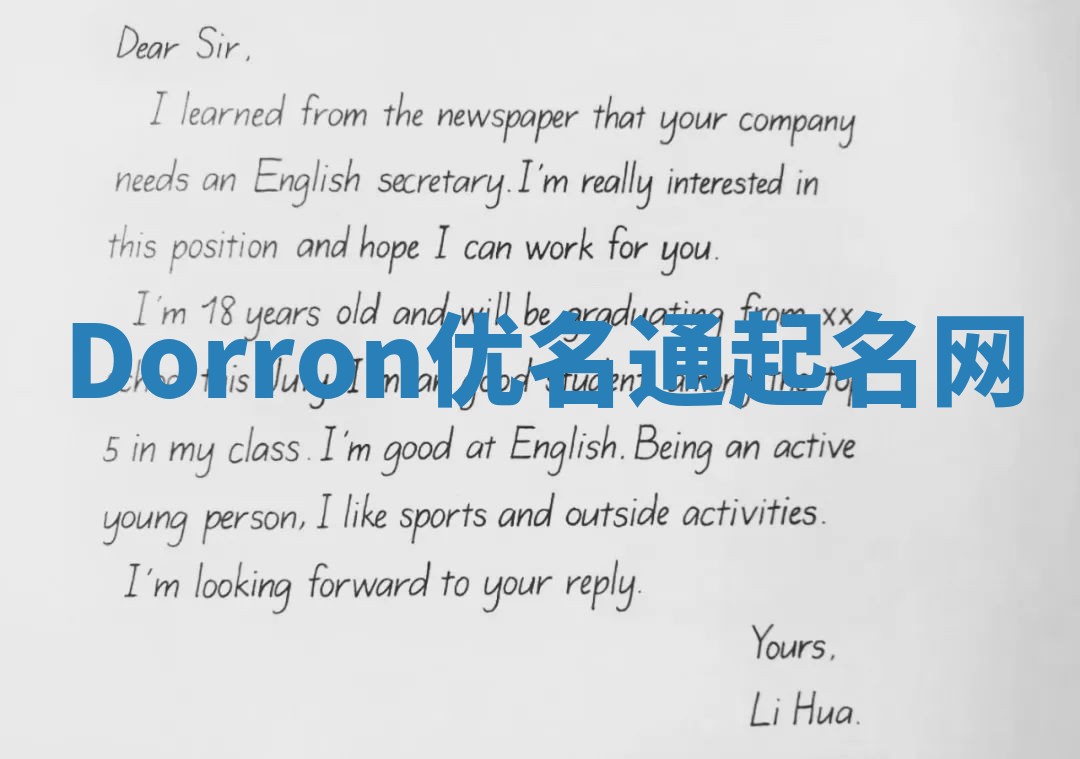 Dear Sir,
I learned from the newspaper that your company
needs an English secretary. I'm really interested in
this position and hope I can work for you.
I'm 18 years old and will be graduating from xx
Dorron优名通起名网
this July. I'm an good student among the top
5 in my class. I'm good at English. Being an active
young person, I like sports and outside activities.
I'm looking forward to your reply.
Yours,
Li Hua.